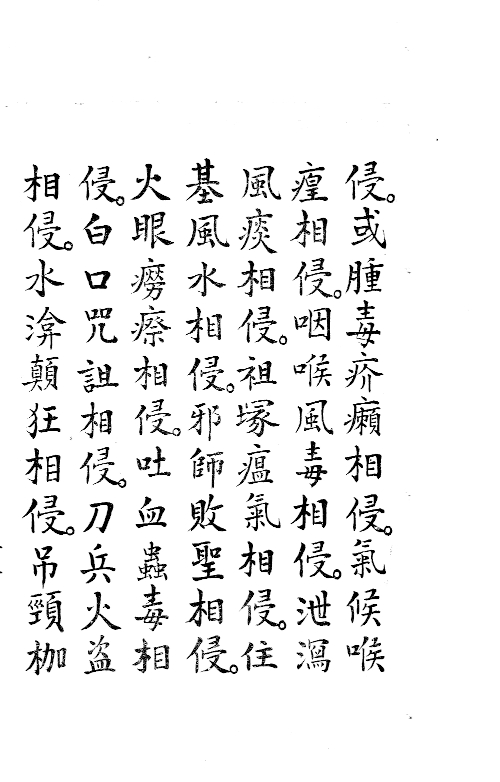 侵。或腫毒疥癩相侵。氣候喉
瘴相侵。咽喉風毒相侵。泄瀉
風痰相侵。祖塚瘟氣相侵。住
基風水相侵。邪師敗聖相侵。
火眼癆瘵相侵。吐血蠱毒相
侵。白口咒詛相侵。刀兵火盜
相侵。水渰顛狂相侵。吊頸枷